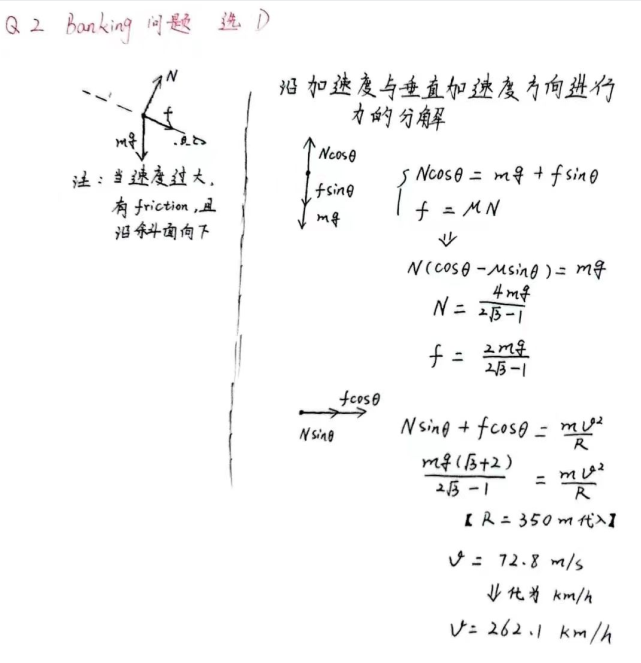 Q2 Banking 问题 选 D
N
f
mg
注：当速度过大，
有 friction，且
沿斜面向下
沿加速度与垂直加速度方向进行
力的分解
Ncosθ
fsinθ
mg
Ncosθ = mg + fsinθ
f = μN
⇓
N(cosθ - μsinθ) = mg
N = 4mg/(2√3-1)
f = 2mg/(2√3-1)
fcosθ
Nsinθ
Nsinθ + fcosθ = mv²/R
mg(√3+2)/(2√3-1) = mv²/R
【R = 350m代入】
v = 72.8 m/s
⇓ 化为 km/h
v = 262.1 km/h